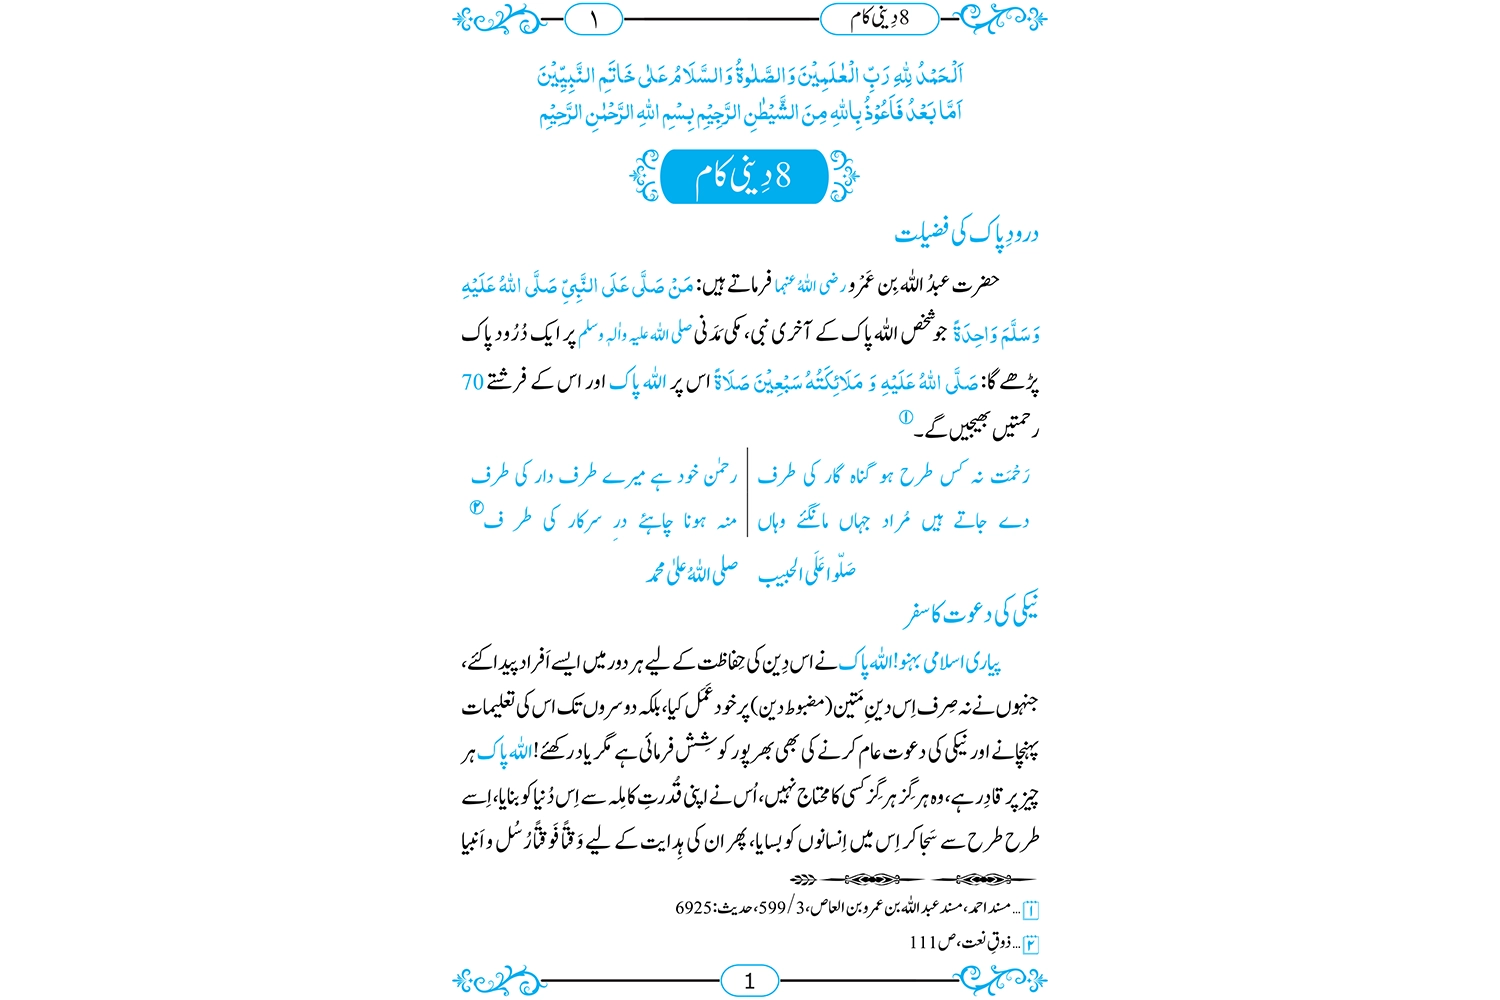 8 دِینی کام
۱
اَلْحَمْدُ لِلّٰهِ رَبِّ الْعٰلَمِیْنَ وَالصَّلٰوةُ وَالسَّلَامُ عَلٰی خَاتَمِ النَّبِیّٖنَ
اَمَّا بَعْدُ فَاَعُوْذُ بِاللّٰهِ مِنَ الشَّیْطٰنِ الرَّجِیْمِ بِسْمِ اللّٰهِ الرَّحْمٰنِ الرَّحِیْمِ
8 دِینی کام
درودِ پاک کی فضیلت
حضرت عبدُ اللہ بِن عَمْرو رضی اللہُ عنہما فرماتے ہیں: مَنْ صَلَّی عَلَی النَّبِیِّ صَلَّی اللّٰهُ عَلَیْهِ
وَسَلَّمَ وَاحِدَةً جو شخص اللہ پاک کے آخری نبی، مکی مَدَنی صلی اللہ علیہ واٰلہٖ وسلم پر ایک دُرُود پاک
پڑھے گا: صَلَّی اللّٰهُ عَلَیْهِ وَ مَلَائِکَتُهُ سَبْعِیْنَ صَلَاةً اس پر اللہ پاک اور اس کے فرشتے 70
رحمتیں بھیجیں گے۔ ①
رَحْمَت نہ کس طرح ہو گناہ گار کی طرف رحمٰن خود ہے میرے طرف دار کی طرف
دے جاتے ہیں مُراد جہاں مانگئے وہاں منہ ہونا چاہئے درِ سرکار کی طرف ②
صَلُّوا عَلَی الحبیب صلی اللہُ علیٰ محمد
نیکی کی دعوت کا سفر
پیاری اسلامی بہنو! اللہ پاک نے اس دِین کی حِفاظت کے لیے ہر دور میں ایسے اَفراد پیدا کئے،
جنہوں نے نہ صِرف اِس دینِ مَتین (مضبوط دین) پر خود عَمَل کیا، بلکہ دوسروں تک اس کی تعلیمات
پہنچانے اور نیکی کی دعوت عام کرنے کی بھی بھرپور کوشِش فرمائی ہے مگر یاد رکھئے! اللہ پاک ہر
چیز پر قادِر ہے، وہ ہرگِز ہرگِز کسی کا محتاج نہیں، اُس نے اپنی قُدرتِ کامِلہ سے اِس دُنیا کو بنایا، اِسے
طرح طرح سے سَجا کر اِس میں اِنسانوں کو بسایا، پھر ان کی ہِدایت کے لیے وَقتاً فَوَقتاً رُسُل و اَنبیا
۱… مسند احمد، مسند عبد اللہ بن عمرو بن العاص، 3/599، حدیث: 6925
۲… ذوقِ نعت، ص 111
1